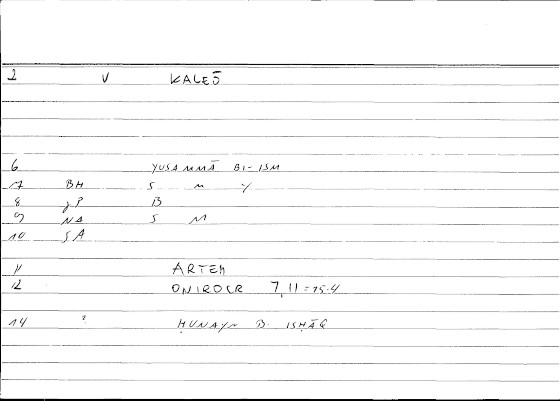 2 V KALEŠ
6 YUSAMMĀ BI-ISM
7 BH S M Y
8 JP B
9 NA S M
10 SA
11 ARTEM
12 ONIROCR 7,11 = 15.4
14 ? ḤUNAYN B. ISḤĀQ